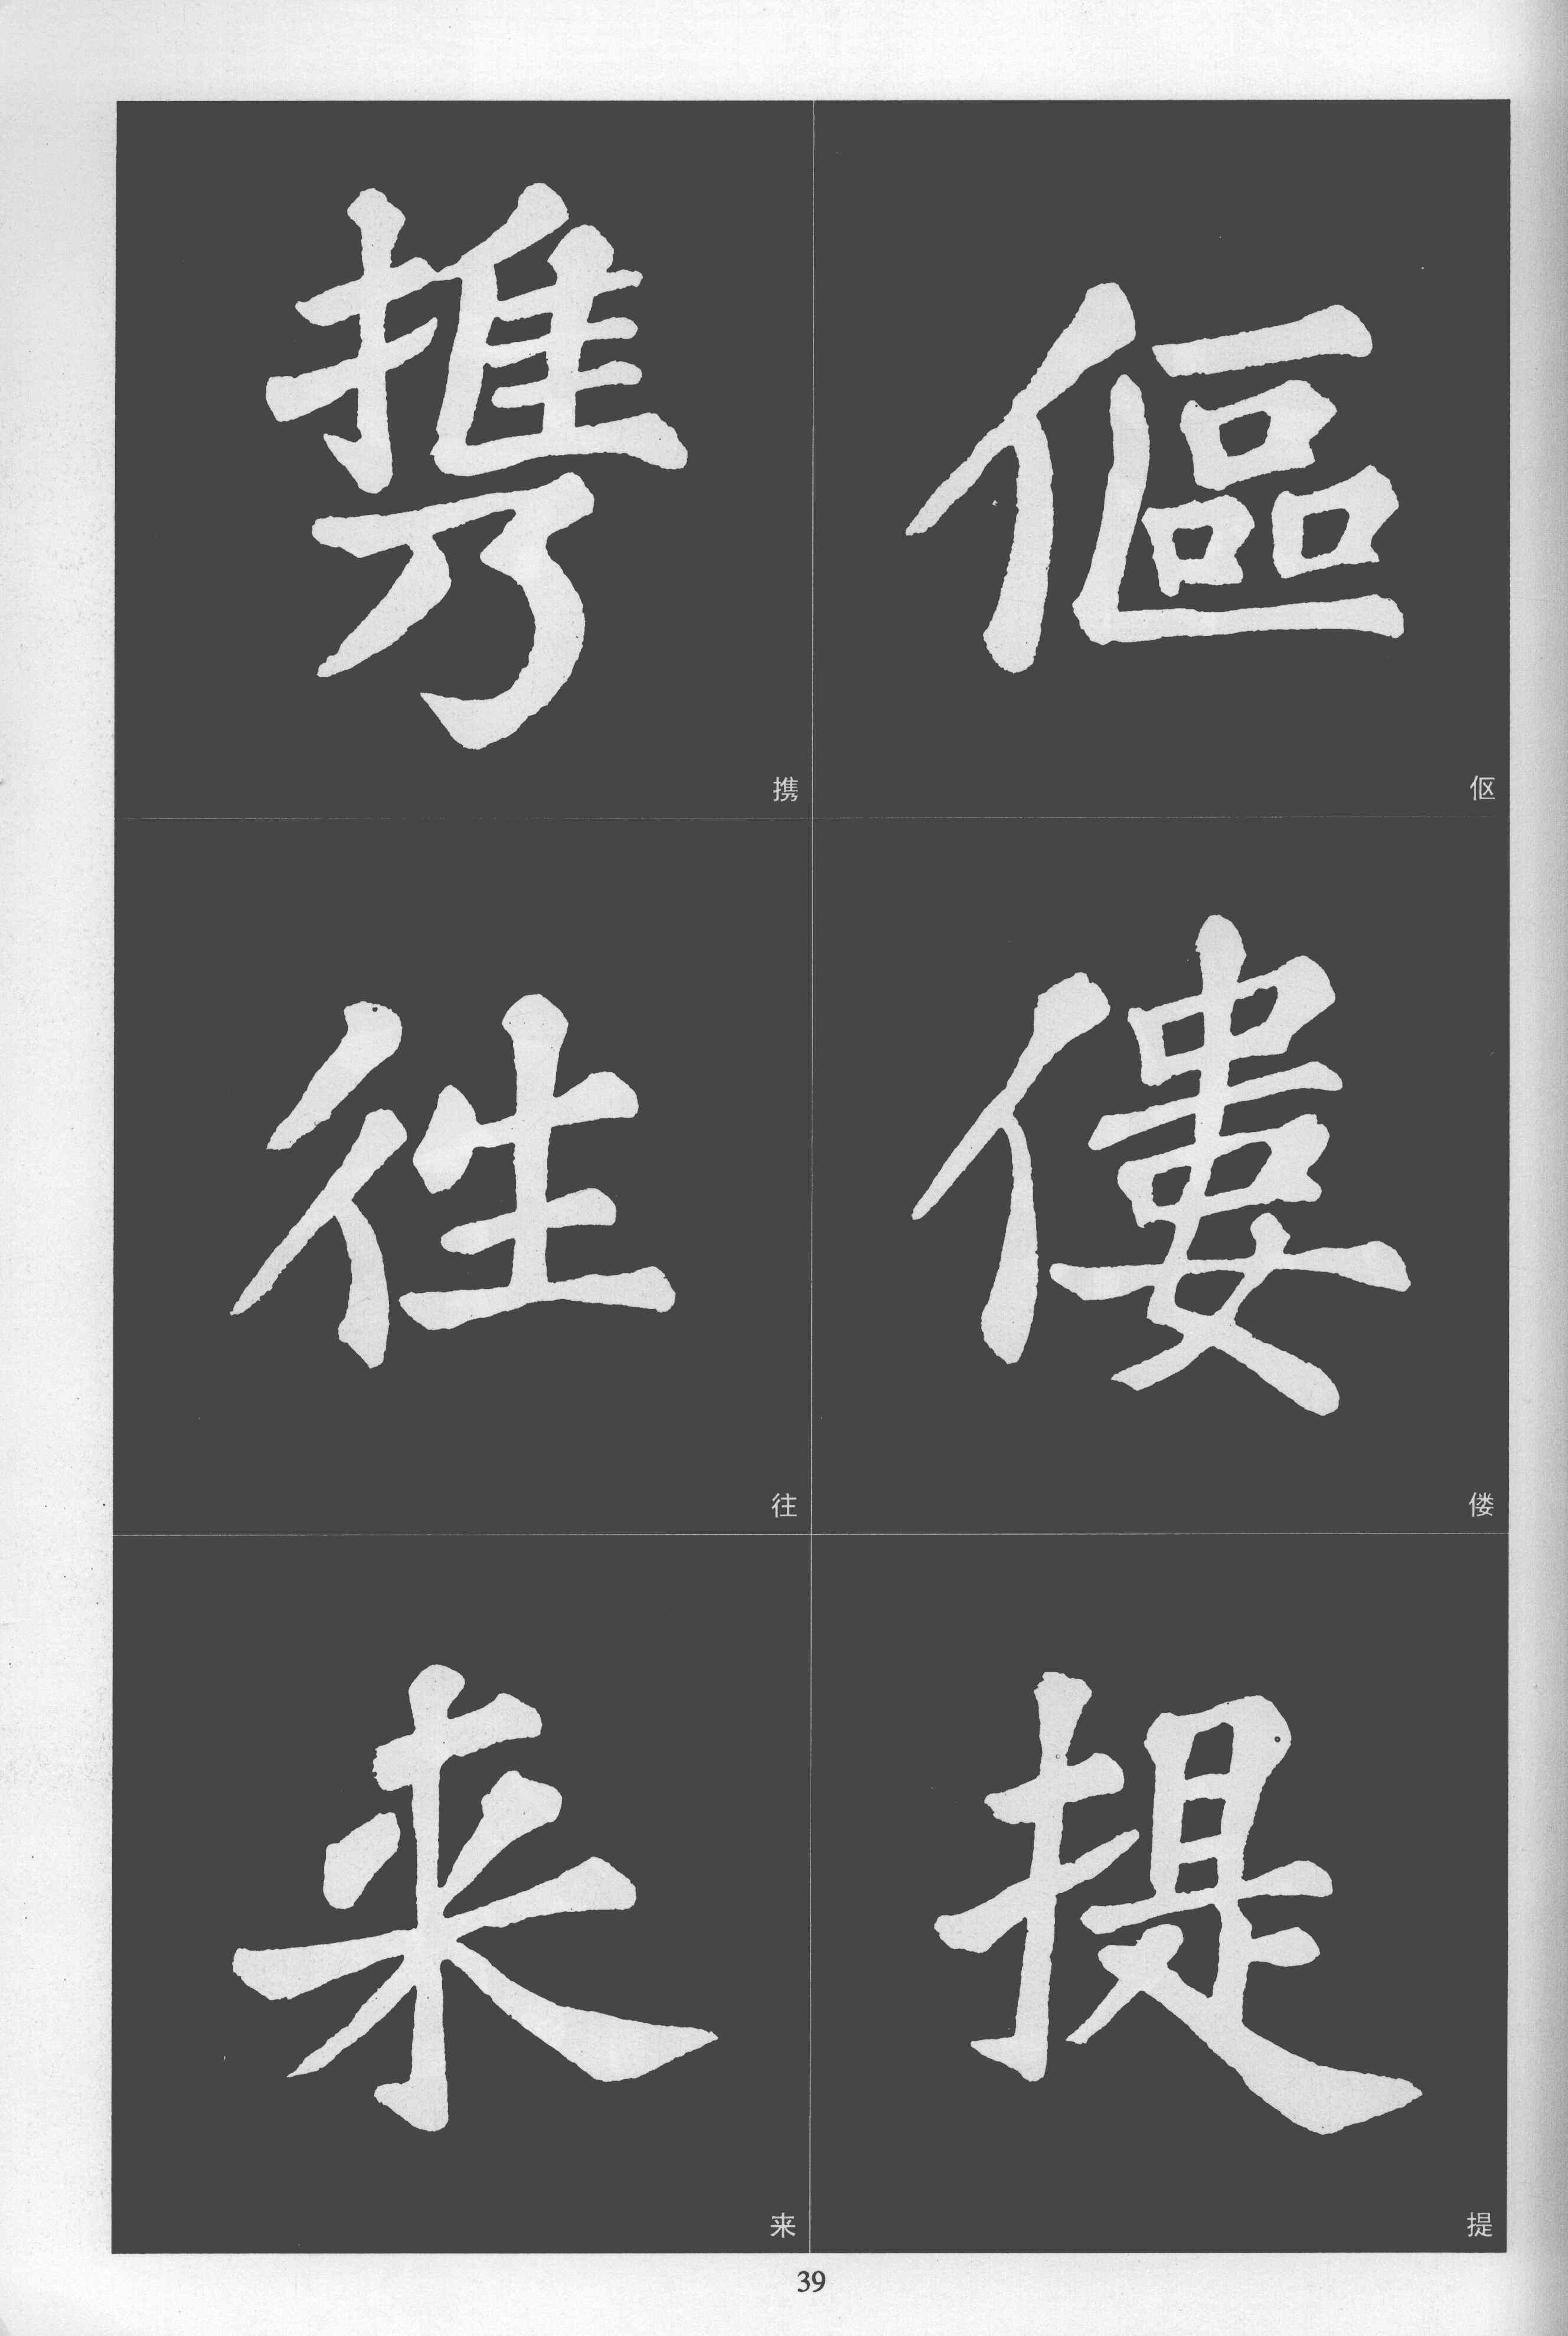 傴
伛
僂
偻
提
提
攜
携
往
往
来
来
39